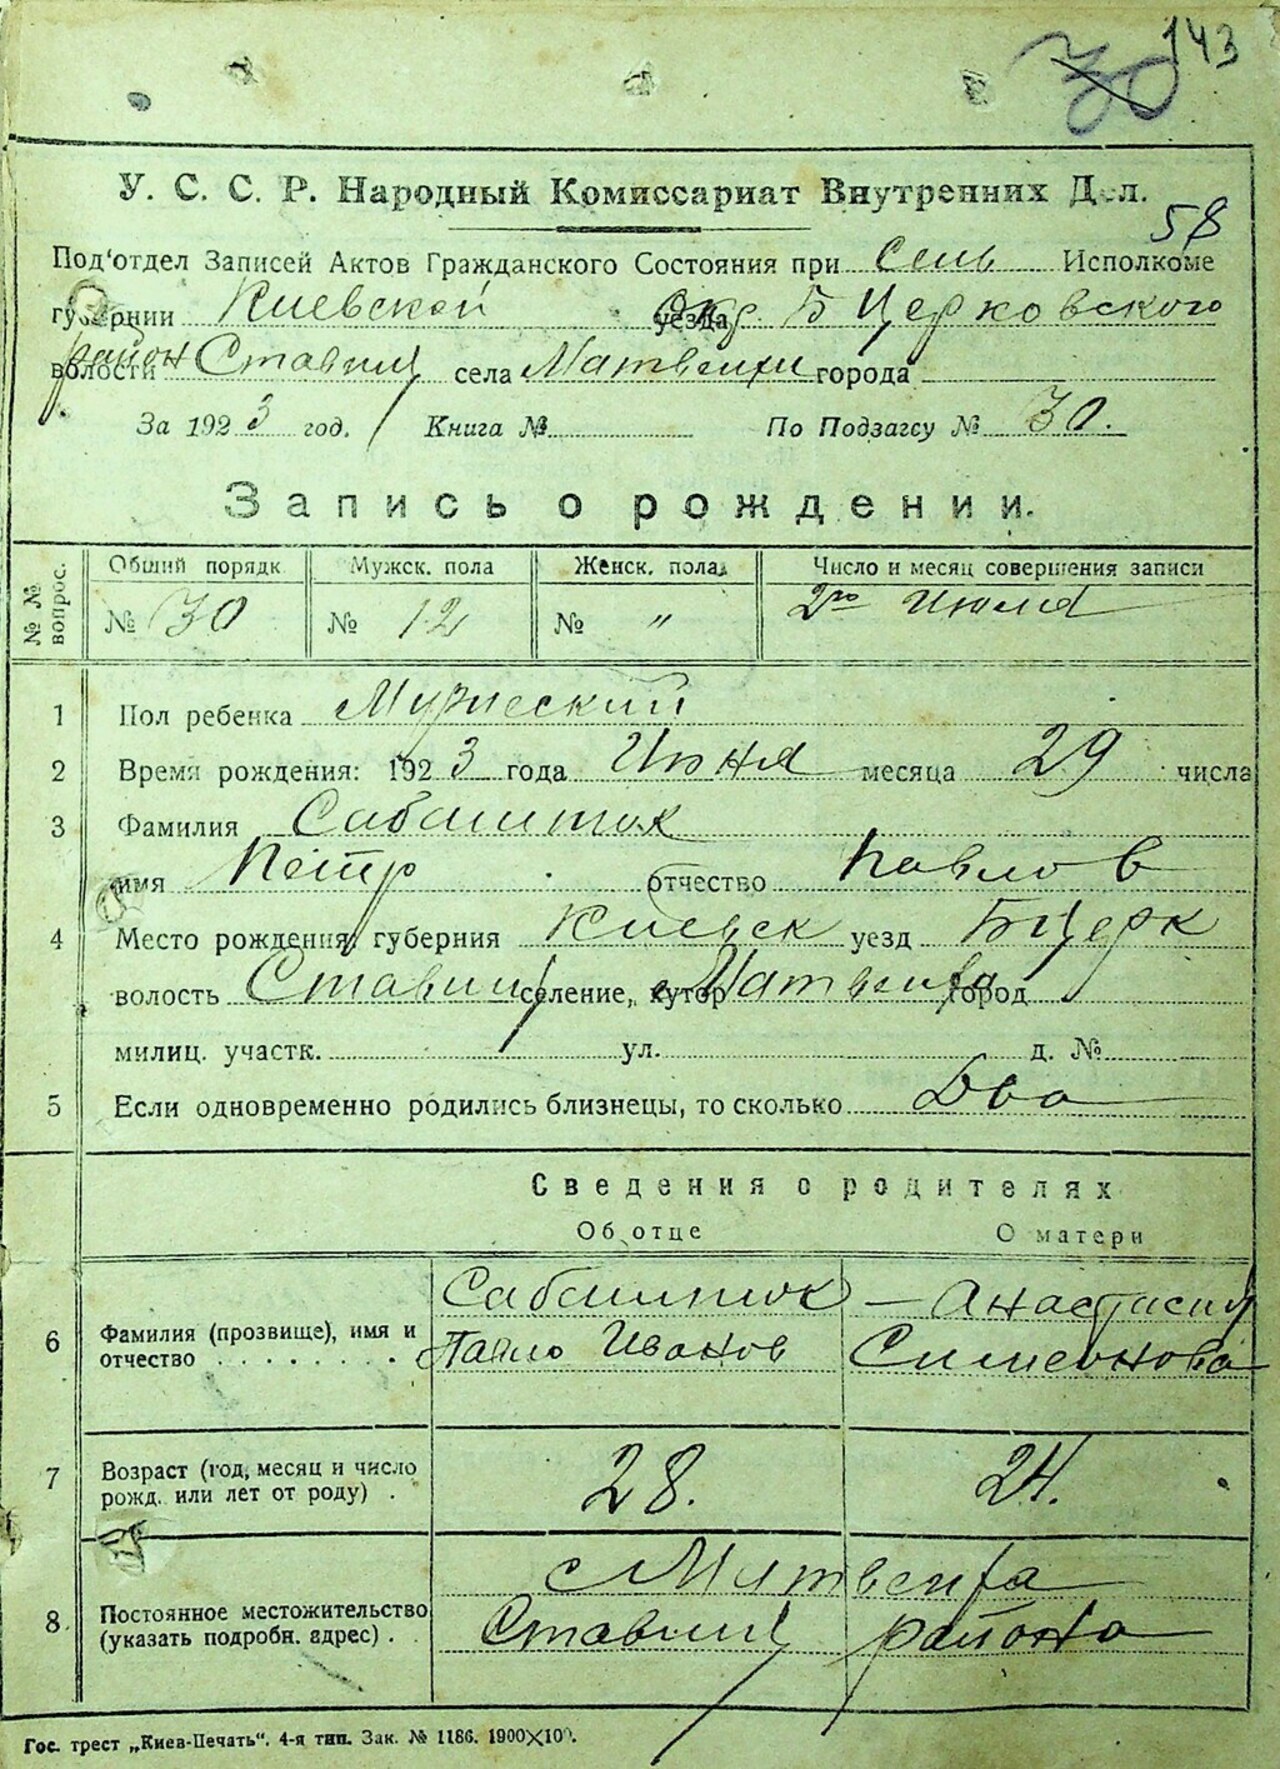 143
30
У. С. С. Р. Народный Комиссариат Внутренних Дел.
58
Под'отдел Записей Актов Гражданского Состояния при Сель Исполкоме
губернии Киевской уезда Окр. Б Церковского
район
волости Ставищ села Матвеихи города
За 1923 год. Книга № По Подзагсу № 30.
Запись о рождении.
№ № вопрос.
Общий порядк. Мужск. пола Женск. пола Число и месяц совершения записи
№ 30 № 12 № " 2го Июля
1 Пол ребенка Мужеский
2 Время рождения: 1923 года Июня месяца 29 числа
3 Фамилия Сабаштюк
имя Петр отчество Павлов
4 Место рождения, губерния Киевск уезд БЦерк
волость Ставищ селение, хутор Матвеиха город
милиц. участк. ул. д. №
5 Если одновременно родились близнецы, то сколько Два
Сведения о родителях
Об отце О матери
Сабаштюк — Анастасия
6 Фамилия (прозвище), имя и отчество Павло Иванов Симеонова
7 Возраст (год, месяц и число рожд. или лет от роду) . 28. 24.
с Матвеиха
8 Постоянное местожительство (указать подробн. адрес) . Ставищ района
Гос. трест „Киев-Печать“. 4-я тип. Зак. № 1186. 1900×100.